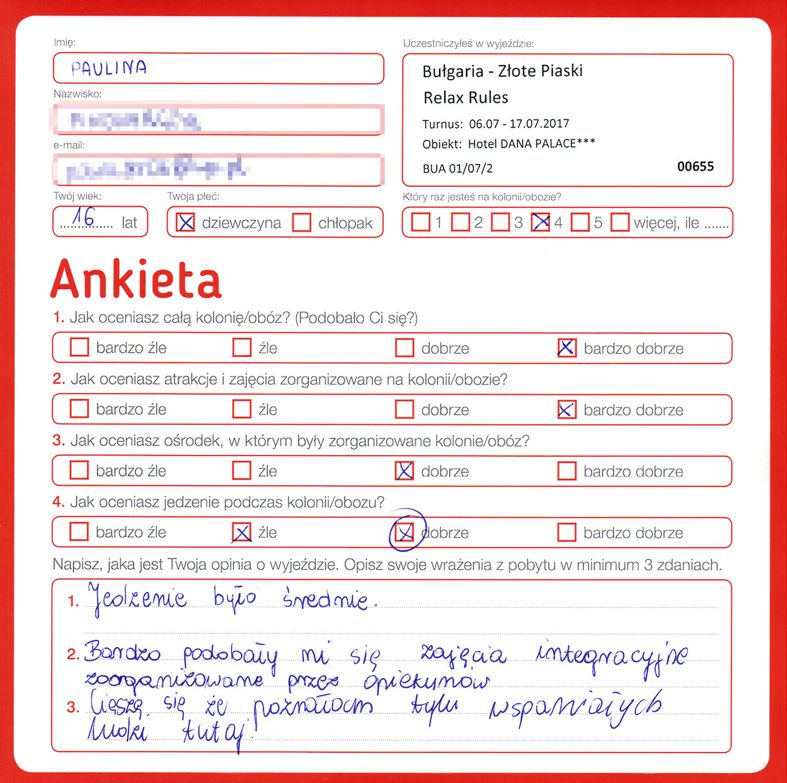 Imię:
PAULINA
Nazwisko:
e-mail:
Twój wiek:
16 lat
Twoja płeć:
dziewczyna chłopak
Uczestniczyłeś w wyjeździe:
Bułgaria - Złote Piaski
Relax Rules
Turnus: 06.07 - 17.07.2017
Obiekt: Hotel DANA PALACE***
BUA 01/07/2 00655
Który raz jesteś na kolonii/obozie?
1 2 3 4 5 więcej, ile .......
Ankieta
1. Jak oceniasz całą kolonię/obóz? (Podobało Ci się?)
bardzo źle źle dobrze bardzo dobrze
2. Jak oceniasz atrakcje i zajęcia zorganizowane na kolonii/obozie?
bardzo źle źle dobrze bardzo dobrze
3. Jak oceniasz ośrodek, w którym były zorganizowane kolonie/obóz?
bardzo źle źle dobrze bardzo dobrze
4. Jak oceniasz jedzenie podczas kolonii/obozu?
bardzo źle źle dobrze bardzo dobrze
Napisz, jaka jest Twoja opinia o wyjeździe. Opisz swoje wrażenia z pobytu w minimum 3 zdaniach.
1. Jedzenie było średnie.
2. Bardzo podobały mi się zajęcia integracyjne
zoorganizowane przez opiekunów
3. Cieszę się że poznałam tylu wspaniałych
ludzi tutaj!